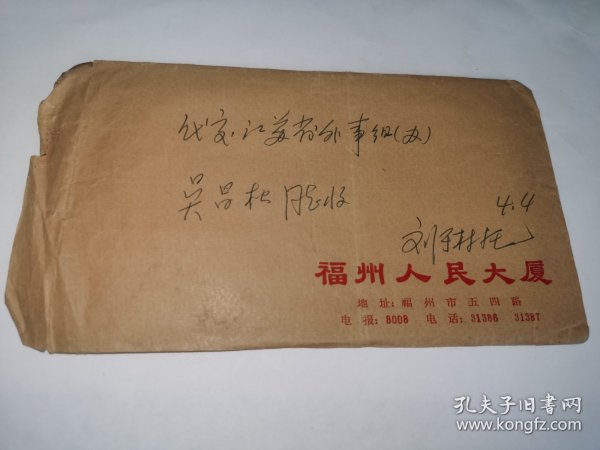 代交江苏省外事组(办)
吴昌松同志收
4.4
刘于村托
福州人民大厦
地址:福州市五四路
电报:8008 电话:31386 31387
孔夫子旧书网
www.kongfz.com